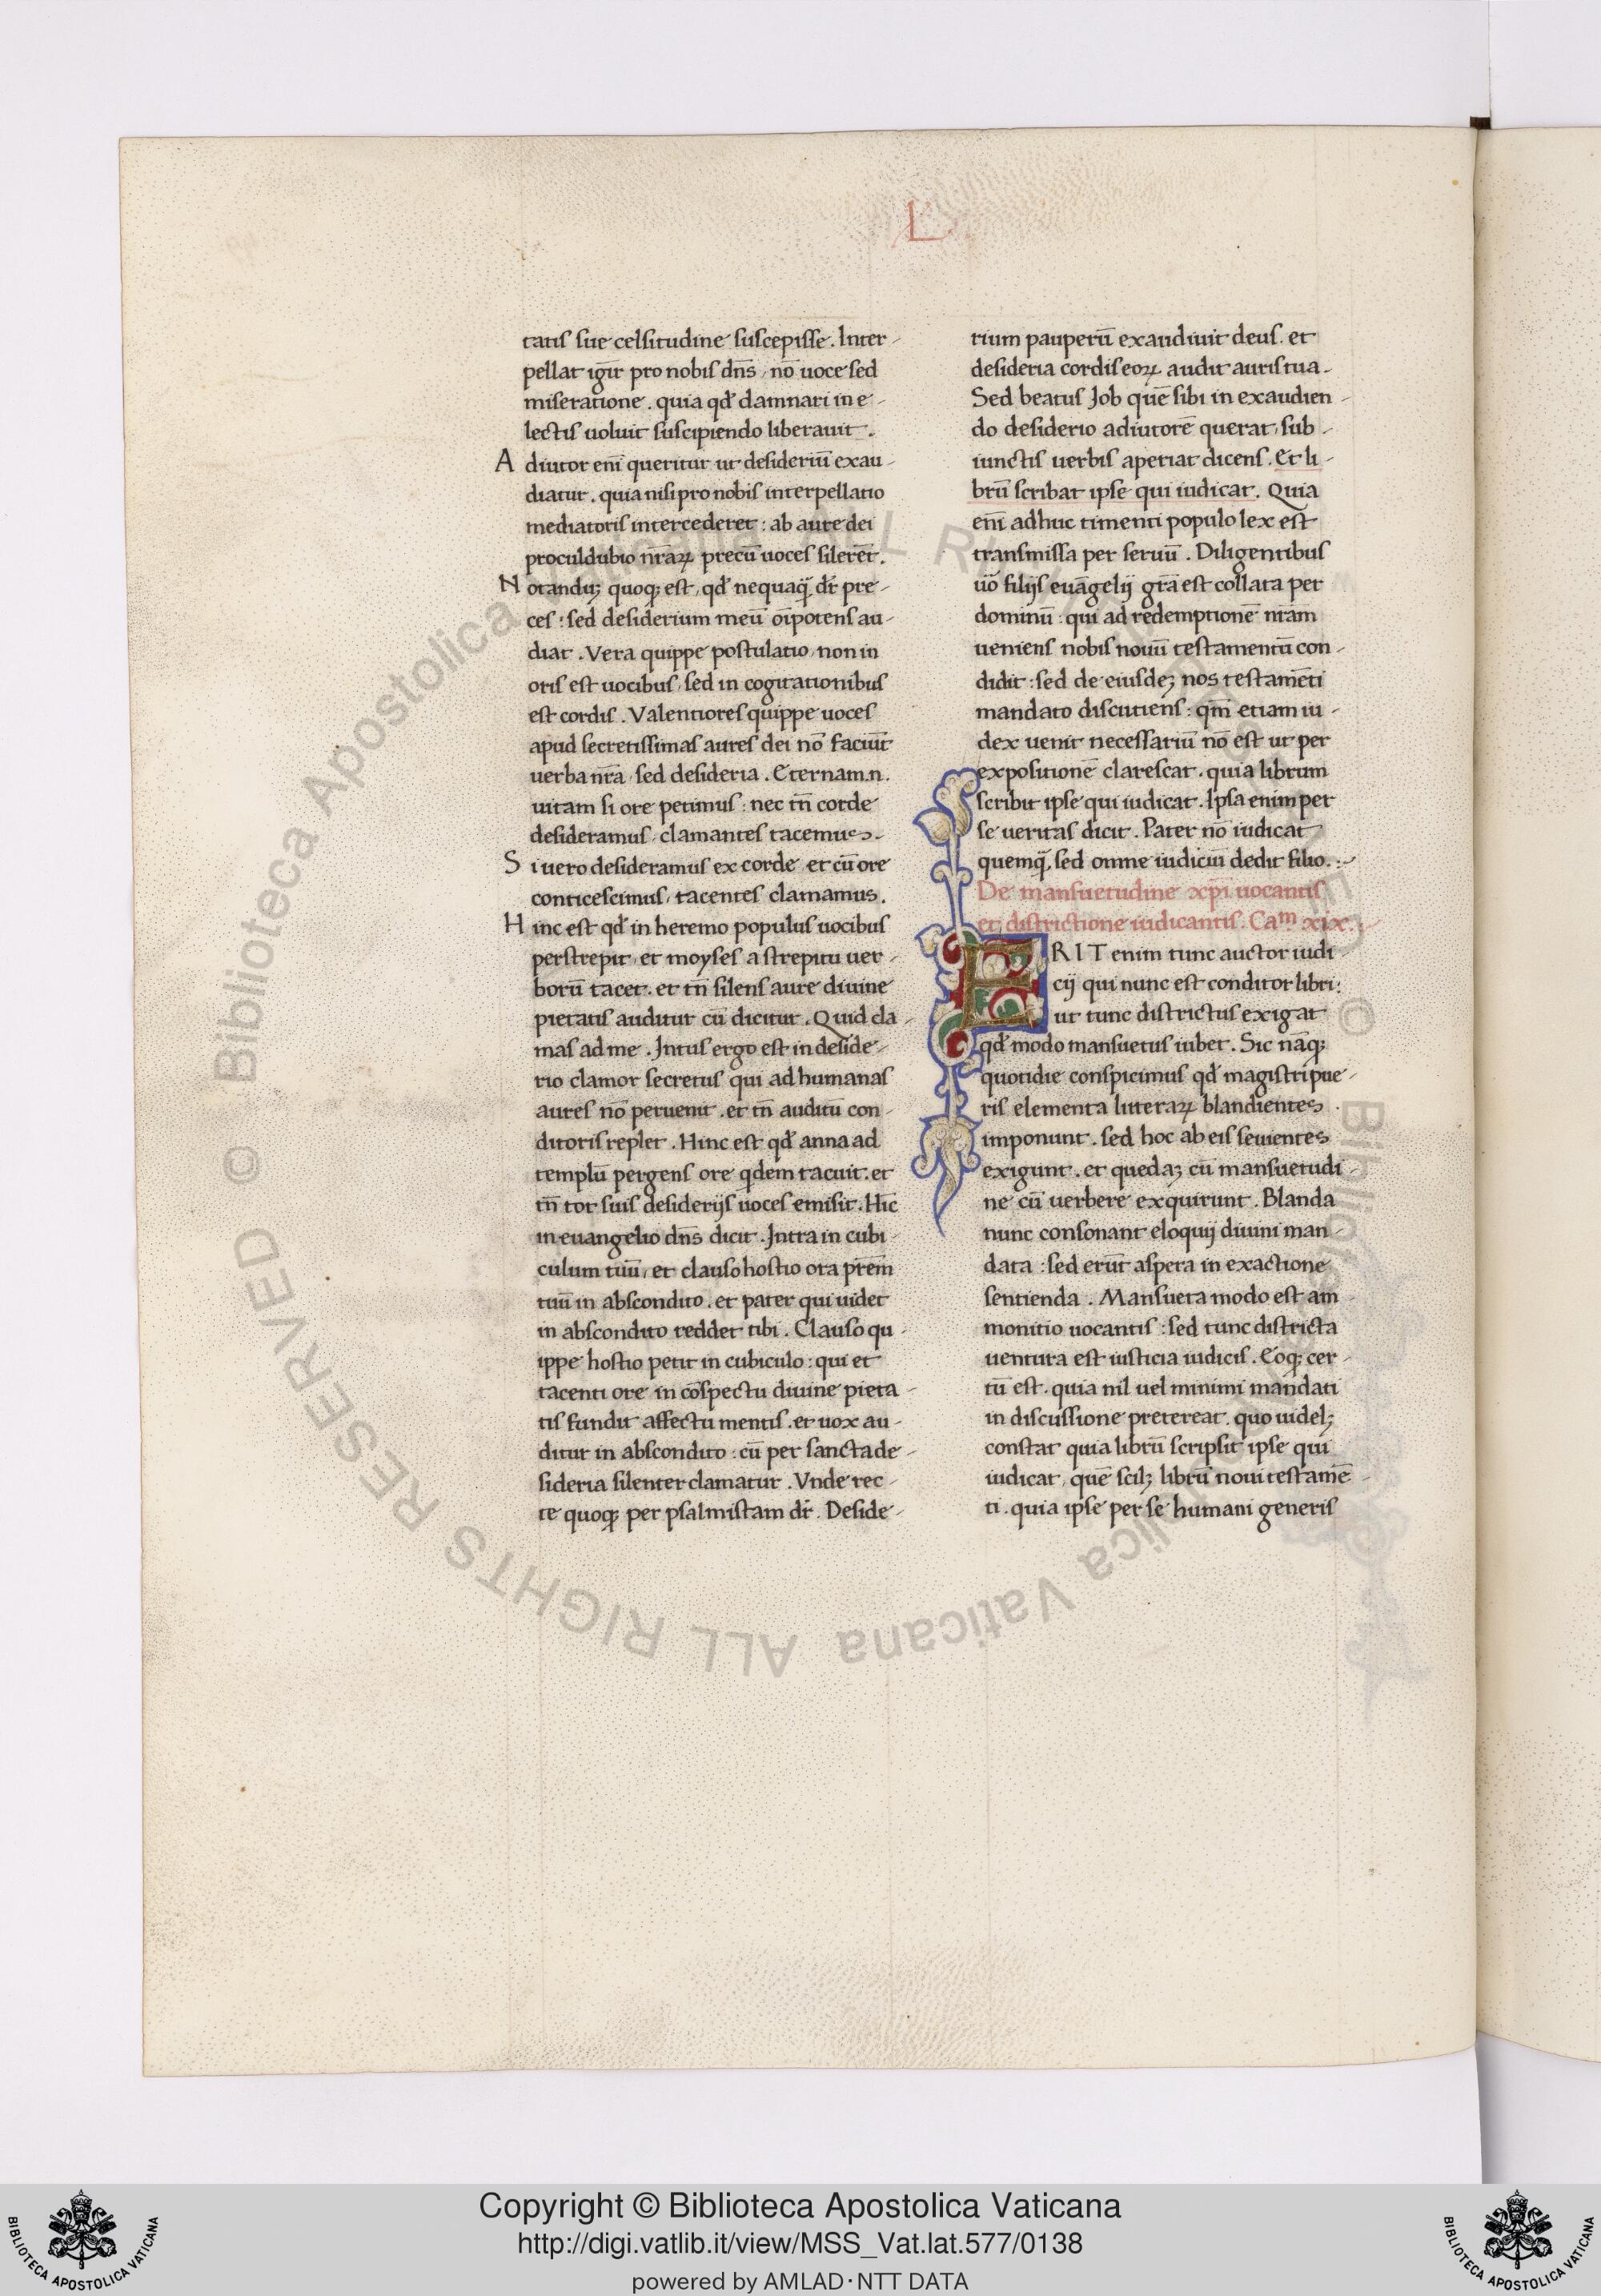 L
tatis sue celsitudine suscepisse. Inter-
pellat igit̄ pro nobis dn̄s, nō uoce sed
miseratione. quia qđ damnari in e-
lectis uoluit suscipiendo liberauit.
Adiutor enī queritur ut desideriū exau-
diatur. quia nisi pro nobis interpellatio
mediatoris intercederet: ab aure dei
proculdubio nr̄aꝝ precū uoces silerēt.
Notanduꝫ quoqꝫ est, qđ nequaq̄ dr̄ pre-
ces: sed desiderium meū oīpotens au-
diat. Vera quippe postulatio, non in
oris est uocibus, sed in cogitationibus
est cordis. Valentiores quippe uoces
apud secretissimas aures dei nō faciūt
uerba nr̄a, sed desideria. Eternam .n.
uitam si ore petimus: nec tn̄ corde
desideramus, clamantes tacemus.
Si uero desideramus ex corde, et cū ore
conticescimus, tacentes clamamus.
Hinc est qđ in heremo populus uocibus
perstrepit, et moyses a strepitu uer-
borū tacet. et tn̄ silens aure diuine
pietatis auditur cū dicitur. Quid cla-
mas ad me. Intus ergo est in deside-
rio clamor secretus qui ad humanas
aures nō peruenit. et tn̄ auditū con-
ditoris replet. Hinc est qđ anna ad
templū pergens ore qdem tacuit. et
tn̄ tot suis desiderijs uoces emisit. Hīc
in euangelio dn̄s dicit. Intra in cubi-
culum tuū, et clauso hostio ora pr̄em
tuū in abscondito. et pater qui uidet
in abscondito reddet tibi. Clauso qu-
ippe hostio petit in cubiculo: qui et
tacenti ore in cōspectu diuine pieta-
tis fundit affectu mentis. et uox au-
ditur in abscondito: cū per sancta de-
sideria silenter clamatur. Vnde rec-
te quoqꝫ per psalmistam dr̄. Deside-
rium pauperū exaudiuit deus. et
desideria cordis eoꝝ audit auris tua.
Sed beatus Job quē sibi in exaudien-
do desiderio adiutorē querat, sub-
iunctis uerbis aperiat dicens. Et li-
brū scribat ipse qui iudicat. Quia
enī adhuc timenti populo lex est
transmissa per seruū. Diligentibus
uō filijs euāgelij gr̄a est collata per
dominū: qui ad redemptionē nr̄am
ueniens nobis nouū testamentū con-
didit: sed de eiusdeꝫ nos testamēti
mandato discutiens: qm̄ etiam iu-
dex uenit necessariū nō est ut per
expositionē clarescat. quia librum
scribit ipse qui iudicat. Ipsa enim per
se ueritas dicit. Pater nō iudicat
quemq̄, sed omne iudiciū dedit filio.:-
De mansuetudine xp̄i uocantis
et districtione iudicantis. Caᵐ xix.:
ERIT enim tunc auctor iudi-
cij qui nunc est conditor libri:
ut tunc districtus exigat
qđ modo mansuetus iubet. Sic nāqꝫ
quotidie conspicimus qđ magistri pue-
ris elementa litteraꝝ blandientes
imponunt. sed hoc ab eis seuientes
exigunt. et quedaꝫ cū mansuetudi-
ne cū uerbere exquirunt. Blanda
nunc consonant eloquij diuini man-
data: sed erūt aspera in exactione
sentienda. Mansueta modo est am-
monitio uocantis: sed tunc districta
uentura est iusticia iudicis. Eoqꝫ cer-
tū est. quia nil uel minimi mandati
in discussione pretereat. quo uidelꝫ
constat quia librū scripsit ipse qui
iudicat, quē scilꝫ librū noui testamē-
ti. quia ipse per se humani generis
© Biblioteca Apostolica Vaticana ALL RIGHTS RESERVED
Copyright © Biblioteca Apostolica Vaticana
http://digi.vatlib.it/view/MSS_Vat.lat.577/0138
powered by AMLAD·NTT DATA
BIBLIOTECA APOSTOLICA VATICANA
BIBLIOTECA APOSTOLICA VATICANA